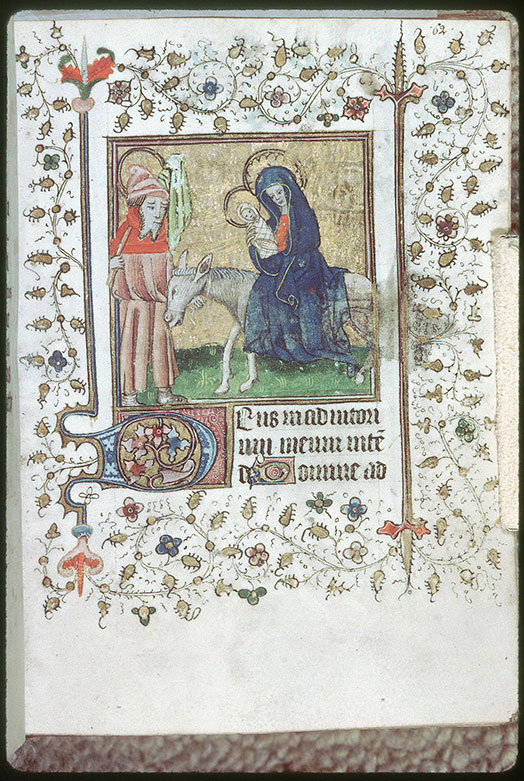 62
DEus in adiutori
um meum intē
de Domine ad